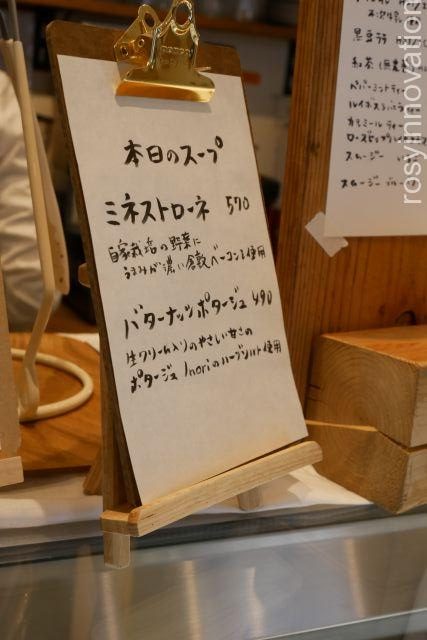 本日のスープ
ミネストローネ 570
自家栽培の野菜に
うまみが濃い倉敷ベーコンを使用
バターナッツポタージュ 490
生クリーム入りのやさしい甘さの
ポタージュ Inoriのハーブソルト使用
黒豆茶
紅茶
ペパーミントティー
ルイボスティー
カモミールティー
スムージー
スムージー
rosyinnovation